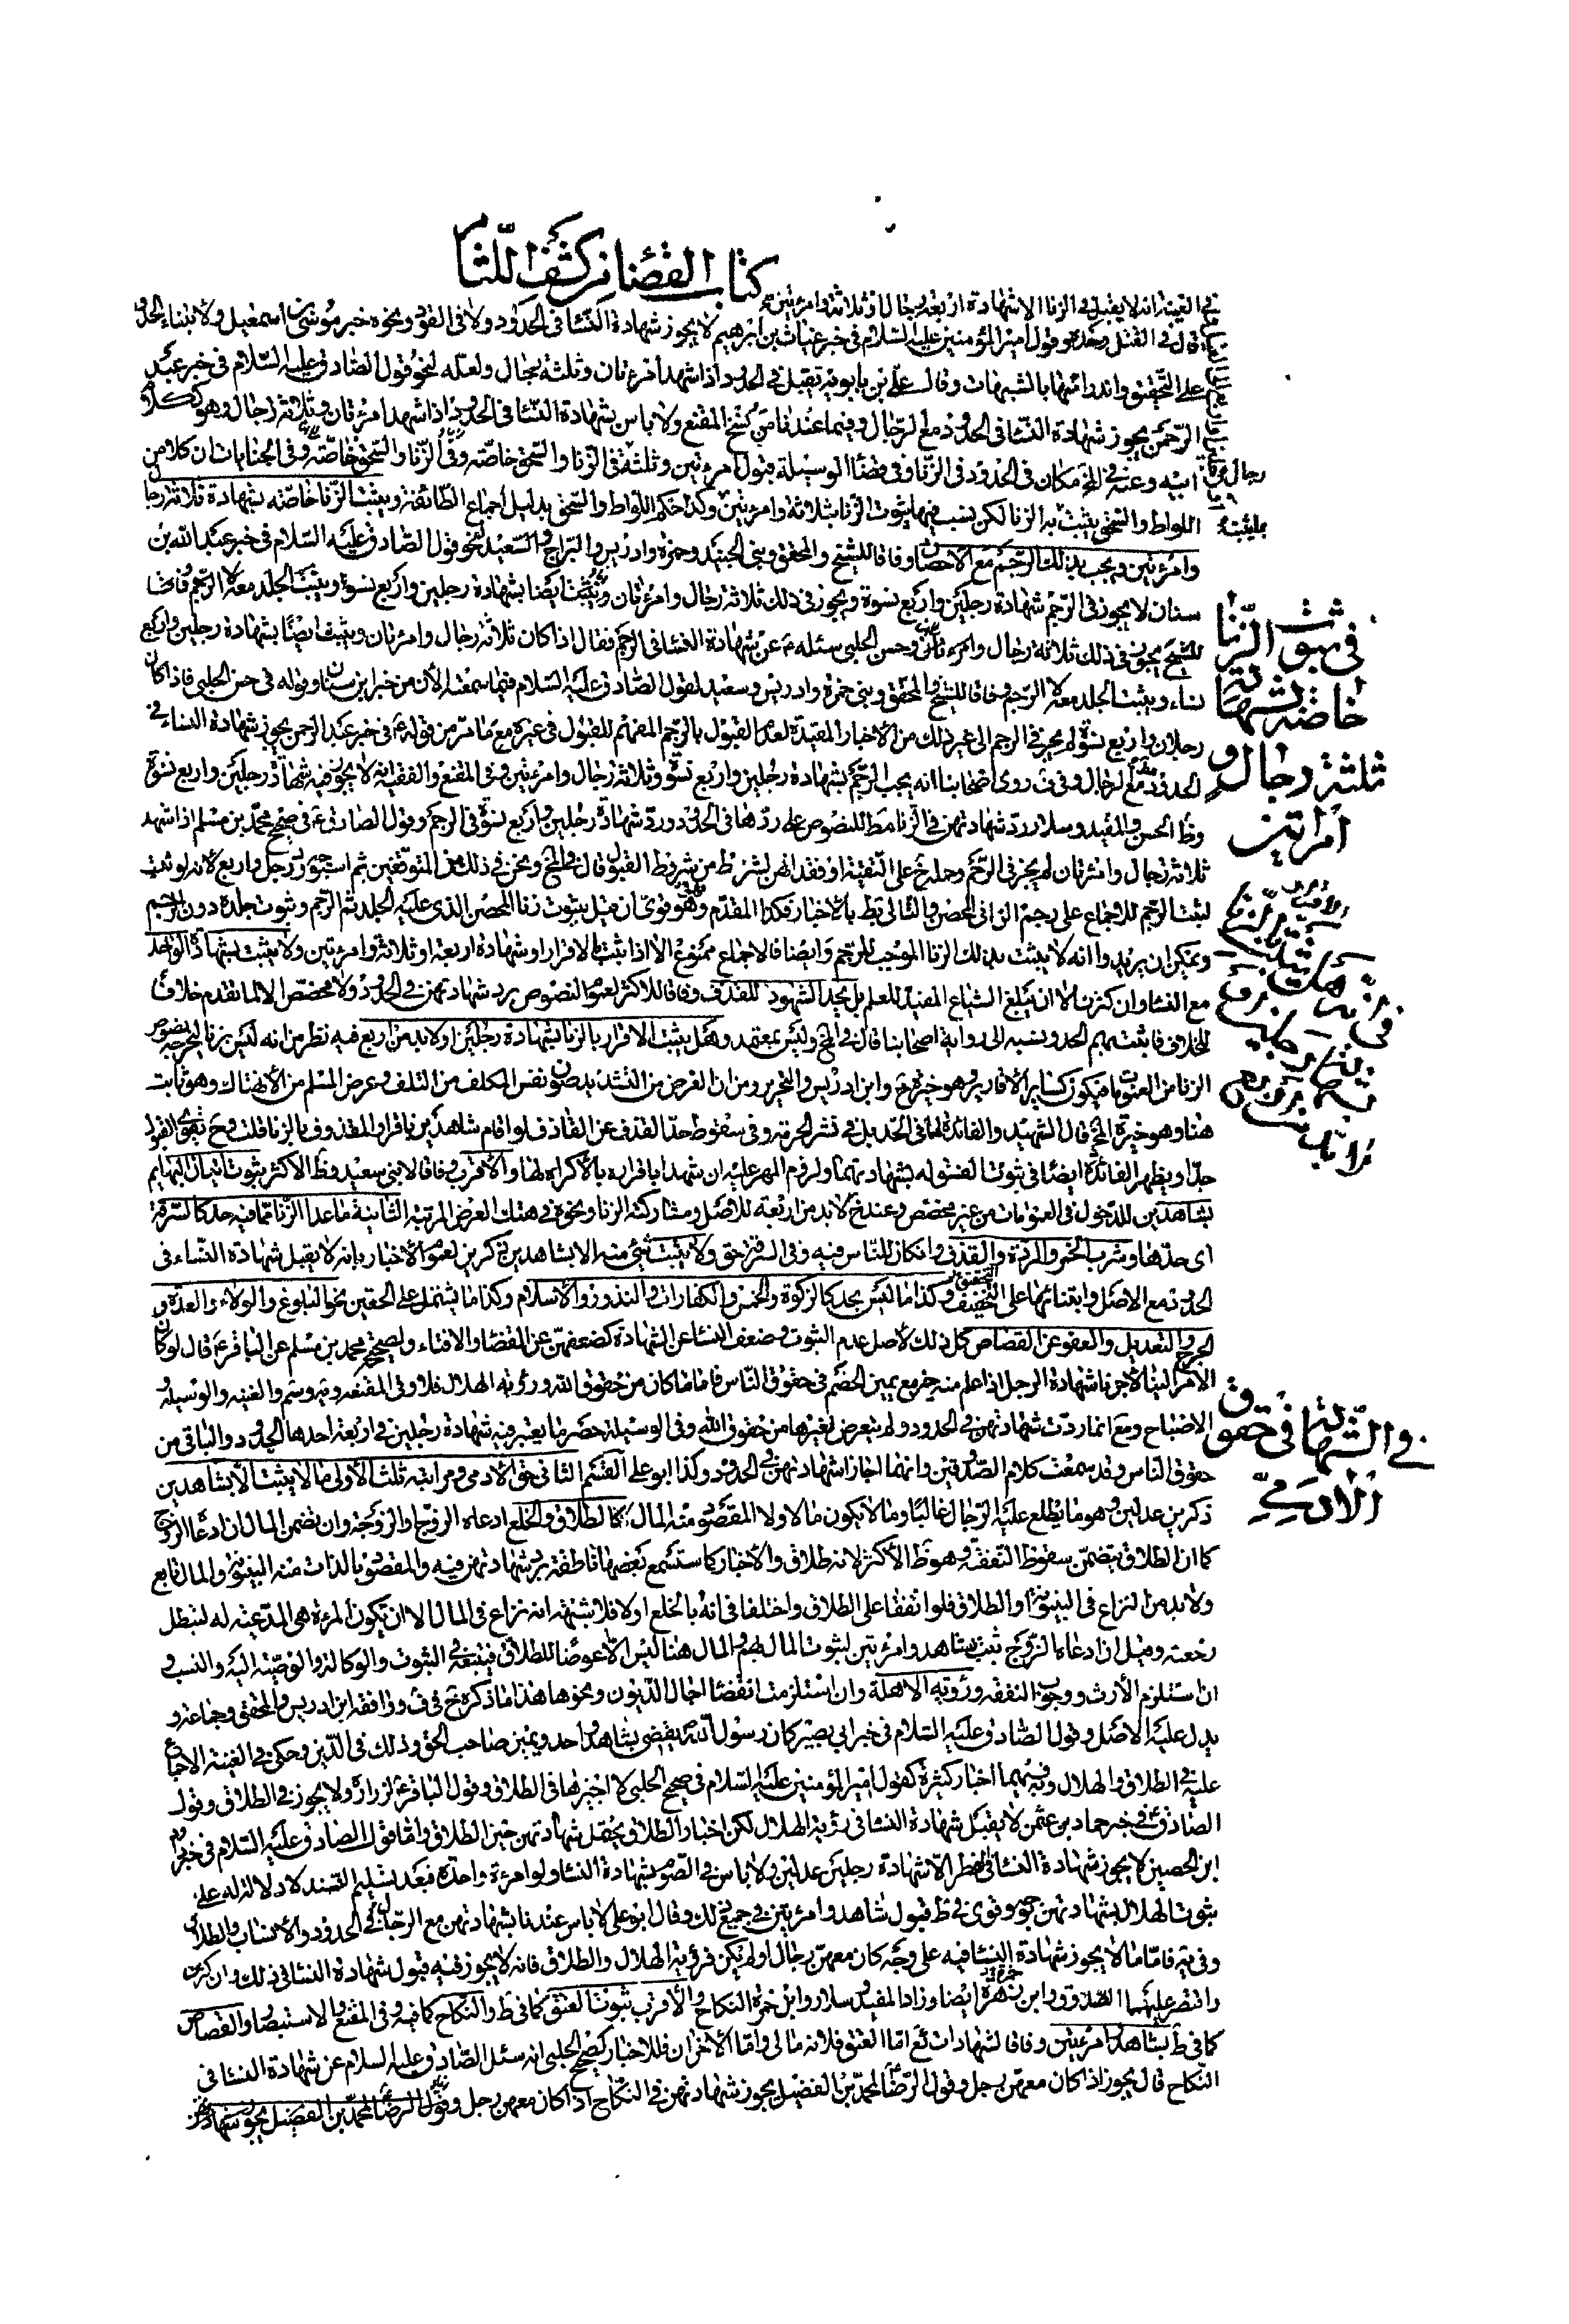 كتاب القضا من كشف اللثام
في الغنية انه لا يقبل في الزنا الا شهادة اربعة رجال او ثلاثة وامرئتين
في القتل وحده وقول امير المؤمنين عليه السلام في خبر غياث بن ابرهيم لا يجوز شهادة النساء في الحدود ولا في القود ونحوه خبر موسى بن اسمعيل ولابتناء الحدود
على التحقيق واندرائها بالشبهات وقال علي بن بابويه تقبل في الحدود اذا شهد امرئتان وثلثة رجال ولعله لنحو قول الصادق عليه السلام في خبر عبد
الرحمن يجوز شهادة النساء في الحدود مع الرجال وفيما عندنا من نسخ المقنع ولا باس بشهادة النساء في الحدود اذا شهد امرئتان وثلاثة رجال وهو
ابيه وعنه في المخ مكان في الحدود في الزنا وفي قضاء الوسيلة قبول امرئتين وثلثة في الزنا والسحق خاصة وفي الزنا والسحق خاصة وفي الجنايات ان كلا من
اللواط والسحق يثبت به الزنا لكن ينسب فيها ثبوت الزنا بثلاثة وامرئتين وكذا حكم اللواط والسحق بدليل اجماع الطائفة ويثبت الزنا خاصة بشهادة ثلاثة رجال
وامرئتين ويجب بذلك الرجم مع الاحصان وفاقا للشيخ والمحقق وبني الجنيد وحمزة وادريس والبراج والسعيد لنحو قول الصادق عليه السلام في خبر عبد الله بن
سنان لا يجوز في الرجم شهادة رجلين واربع نسوة ويجوز في ذلك ثلاثة رجال وامرئتان ويثبت ايضا بشهادة رجلين واربع نسوة ويثبت الجلد معه لا الرجم وفاقا
للشيخ يجوز في ذلك ثلاثة رجال وامرئتان وحسن الحلبي سئله عن شهادة النساء في الرجم فقال اذا كان ثلاثة رجال وامرئتان ويثبت ايضا بشهادة رجلين واربع
نساء ويثبت الجلد معه لا الرجم وفاقا للشيخ والمحقق وبني حمزة وادريس وسعيد لقول الصادق عليه السلام فيما سمعته الان من خبر ابن سنان وقوله في حسن الحلبي فاذا كان
رجلان واربع نسوة لم يجز في الرجم الى غير ذلك من الاخبار المقيدة لعدم القبول بالرجم المفهم للقبول في غيره مع ما مر من قوله ع في خبر عبد الرحمن يجوز شهادة النساء في
الحدود مع الرجال وفي ف روى اصحابنا انه يجب الرجم بشهادة رجلين واربع نسوة وثلاثة رجال وامرئتين وفي المقنع والفقيه انه لا يجوز فيه شهادة رجلين واربع نسوة
وظ الحسن والمفيد وسلار رد شهادتهن في الزنا مط للنصوص على ردها في الحدود ورد شهادة رجلين واربع نسوة في الرجم وقول الصادق ع في صحيح محمد بن مسلم اذا شهد
ثلاثة رجال وامرئتان لم يجز في الرجم وحمله خ على التقية او فقد انهن لشرط من شروط القبول قال في المخ ونحن في ذلك من المتوقفين ثم استجود رجل واربع لانه لو ثبت
لثبت الرجم للاجماع على رجم الزاني المحصن والتالي بط بالاخبار فكذا المقدم وهو قوي ان قيل بثبوت زنا المحصن الذي عليه الجلد ثم الرجم وثبوت جلده دون الرجم
ويمكن ان يريدوا انه لا يثبت بذلك الزنا الموجب للرجم وايضا فالاجماع ممنوع الا اذا ثبت بالاقرار او شهادة اربعة او ثلاثة وامرئتين ولا يثبت بشهادة الواحد
مع النساء وان كثرن الا ان يبلغ الشياع المفيد للعلم بل يحد الشهود للقذف وفاقا للاكثر لعموم النصوص برد شهادتهن في الحدود ولا مخصص الا لما تقدم خلافا
للخلاف فاثبت بهم الحد ونسبه الى رواية اصحابنا قال في المخ وليس بمعتمد وهل يثبت الاقرار بالزنا بشهادة رجلين او لا بد من اربع فيه نظر من انه ليس بزنا ليخرجه نصوص
الزنا من العموم فيكون كسائر الاقارير وهو خيرة خ وابن ادريس والتحرير ومن ان الغرض من التشديد صون نفس المكلف من التلف وعرض المسلم من الانهتاك وهو ثابت
هنا وهو خيرة المخ قال الشهيد والفائدة لها في الحد بل في نشر الحرمة وفي سقوط حد القذف عن القاذف لو اقام شاهدين باقرار المقذوف بالزنا قلت وح تقوي القول
جدا ويظهر الفائدة ايضا في ثبوت الفسق له بشهادتهما ولزوم المهر عليه ان شهدا باقراره بالاكراه لها والاقرب وفاقا لابني سعيد وظ الاكثر ثبوت اتيان البهايم
بشاهدين للدخول في العمومات من غير مخصص وعند خ لا بد من اربعة للاصل ومشاركته الزنا ونحوه في هتك العرض المرتبة الثانية ما عدا الزنا مما فيه حد كالسرقة
اي حدها وشرب الخمر والردة والقذف وان كان للناس فيه وفي السرقة حق ولا يثبت شيء منه الا بشاهدين ذكرين لعموم الاخبار بانه لا يقبل شهادة النساء في
الحدود مع الاصل وابتنائها على التخفيف وكذا ما ليس بحد كالزكوة والخمس والكفارات والنذور والاسلام وكذا ما يشتمل على الحقين نحو البلوغ والولاء والعدة و
الجرح والتعديل والعفو عن القصاص كل ذلك لاصل عدم الثبوت وضعف النساء عن الشهادة كضعفهن عن القضاء والافتاء ولصحيح محمد بن مسلم عن الباقر ع قال لو كان
الامر الينا لاجزنا شهادة الرجل اذا علم منه خير مع يمين الخصم في حقوق الناس فاما ما كان من حقوق الله ورؤية الهلال فلا وفي المقنعة ويه وسم والغنيه والوسيلة و
الاصباح ومع انما ردت شهادتهن في الحدود ولم يتعرض لغيرها من حقوق الله وفي الوسيلة حصر ما يعتبر فيه شهادة رجلين في اربعة احدها الحدود والباقي من
حقوق الناس وقد سمعت كلام الصدوقين وانهما اجازا شهادتهن في الحدود وكذا ابو علي القسم الثاني حق الادمي ومراتبه ثلث الاولى ما لا يثبت الا بشاهدين
ذكرين عدلين وهو ما يطلع عليه الرجال غالبا وما لا يكون مالا ولا المقصود منه المال كالطلاق والخلع ادعاه الزوج او الزوجة وان تضمن المال ان ادعاه الزوج
كما ان الطلاق يتضمن سقوط النفقة وهو ظ الاكثر لانه طلاق والاخبار كما ستسمع بعضها قاطقة برد شهادتهن فيه والمقصود بالذات منه البينونة والمال تابع
ولا بد من النزاع في البينونة او الطلاق فلو اتفقا على الطلاق واختلفا في انه بالخلع او لا فلا شبهة انه نزاع في المال الا ان تكون المرءة هي المدعية له لتبطل
رجعته وقيل ان ادعاه الزوج ثبت بشاهد وامرئتين لثبوت المال بهم والمال هنا ليس الا عوضا للطلاق فيتبعه في الثبوت والوكالة والوصية اليه والنسب و
ان استلزم الارث ووجوب النفقة ورؤية الاهلة وان استلزمت انقضاء اجال الديون ونحوها هذا ما ذكره خ في ف ووافقه ابن ادريس والمحقق وجماعة و
يدل عليه الاصل وقول الصادق عليه السلام في خبر ابي بصير كان رسول الله ص يقضي بشاهد واحد ويمين صاحب الحق وذلك في الدين وحكي في الغنية الاجماع
عليه في الطلاق والهلال وبه فيهما اخبار كثيرة كقول امير المؤمنين عليه السلام في صحيح الحلبي لا اجيزها في الطلاق وقول الباقر ع لزرارة ولا يجوز في الطلاق وقول
الصادق ع في خبر حماد بن عثمن لا يقبل شهادة النساء في رؤية الهلال لكن اخبار الطلاق يحتمل شهادتهن حين الطلاق واما قول الصادق عليه السلام في خبر داود
ابن الحصين لا يجوز شهادة النساء في الفطر الا شهادة رجلين عدلين ولا باس في الصوم بشهادة النساء ولو امرءة واحدة فبعد تسليم السند لا دلالة له على
ثبوت الهلال بشهادتهن وقوي في ط قبول شاهد وامرئتين في جميع ذلك وقال ابو علي لا باس عندنا بشهادتهن مع الرجال في الحدود والانساب والطلاق
وفي يه فاما ما لا يجوز شهادة النساء فيه على وجه كان معهن رجال او لم يكن فرؤية الهلال والطلاق فانه لا يجوز فيه قبول شهادة النساء في ذلك وان كثرن
واقتصر عليهما الصدوق وابن زهرة ايضا وزاد المفيد وسلار وابن حمزة النكاح والاقرب ثبوت العتق كما في ط والنكاح كما فيه وفي المقنع والاستبصار والقصاص
كما في ط بشاهد وامرئتين وفاقا لشهادات يع اما العتق فلانه مالي واما الاخران فللاخبار كصحيح الحلبي انه سئل الصادق عليه السلام عن شهادة النساء في
النكاح قال يجوز اذا كان معهن رجل وقول الرضا لمحمد بن الفضيل يجوز شهادتهن في النكاح اذا كان معهن رجل وقول الرضا لمحمد بن الفضيل يجوز شهادتهن
رجال
بمايثبت
في ثبوت الزنا
خاصة بشهادة
ثلثة رجال و
امراتين
في الشهادة في حقوق
الادمي